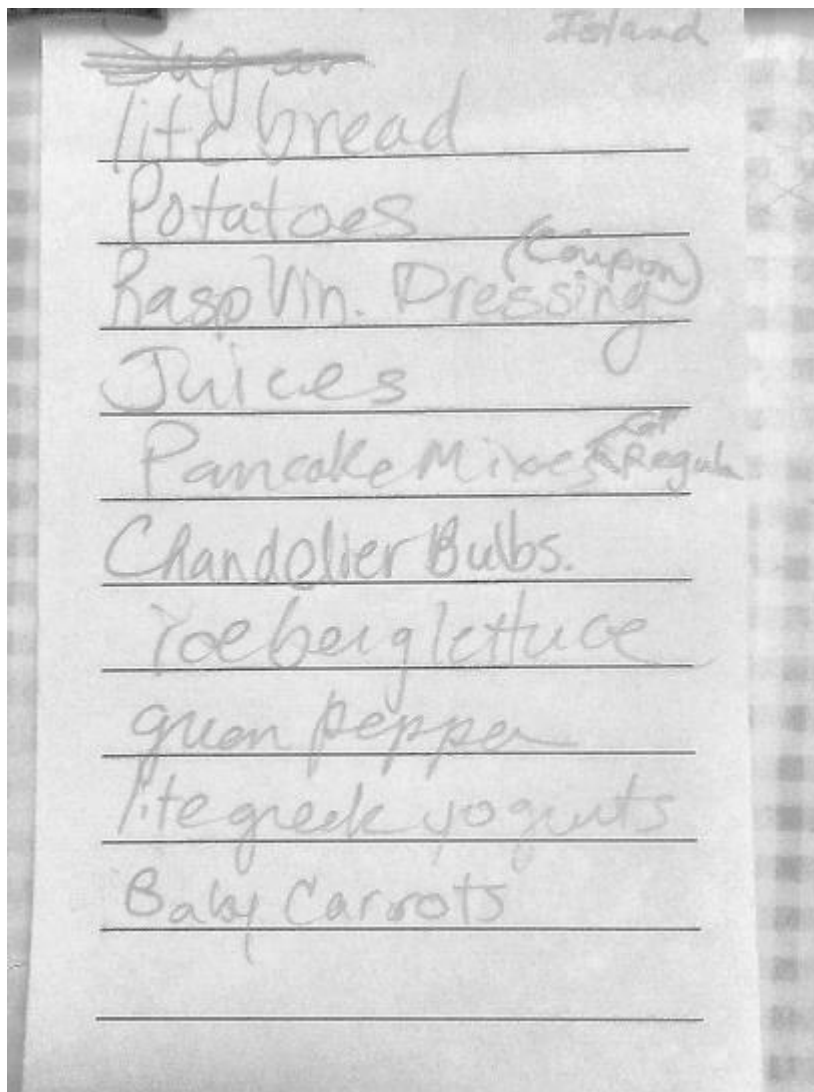 Island
Sugar
lite bread
Potatoes
Rasp Vin. Dressing (Coupon)
Juices
Pancake Mixes
Regula
Chandelier Bulbs.
iceberg lettuce
green pepper
lite greek yogurts
Baby Carrots